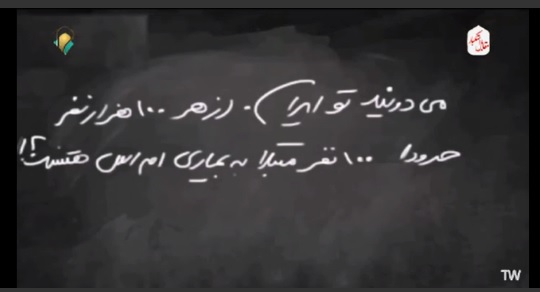 می دونید تو ایران، از هر ۱۰۰ هزار نفر
حدودا ۱۰۰ نفر مبتلا به بیماری ام اس هستند؟!
TW